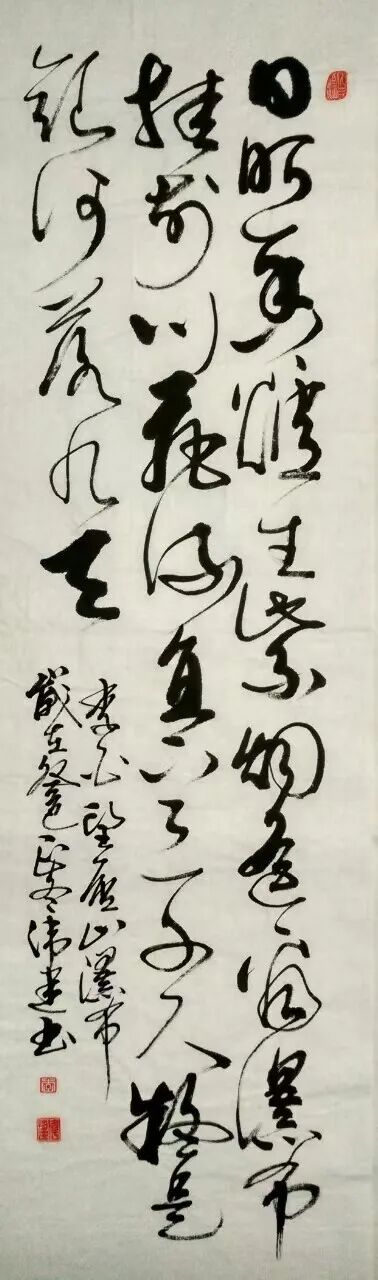 日照香爐生紫烟遥看瀑布
挂前川飛流直下三千尺疑是
銀河落九天
李白望庐山瀑布
歲在冬建书